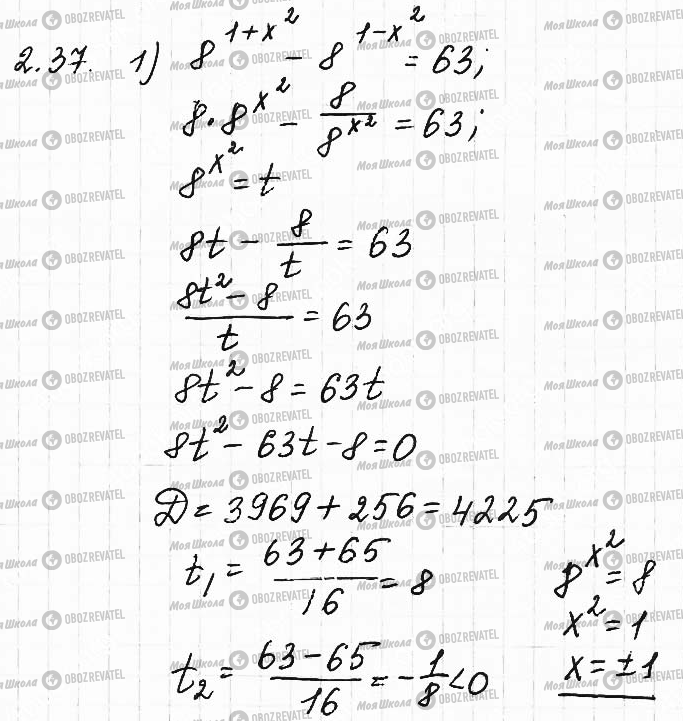 2.37. 1) 8^(1+x²) - 8^(1-x²) = 63;
8·8^(x²) - 8/8^(x²) = 63;
8^(x²) = t
8t - 8/t = 63
(8t² - 8)/t = 63
8t² - 8 = 63t
8t² - 63t - 8 = 0
D = 3969 + 256 = 4225
t₁ = (63+65)/16 = 8
t₂ = (63-65)/16 = -1/8 < 0
8^(x²) = 8
x² = 1
x = ±1
МояШкола OBOZREVATEL